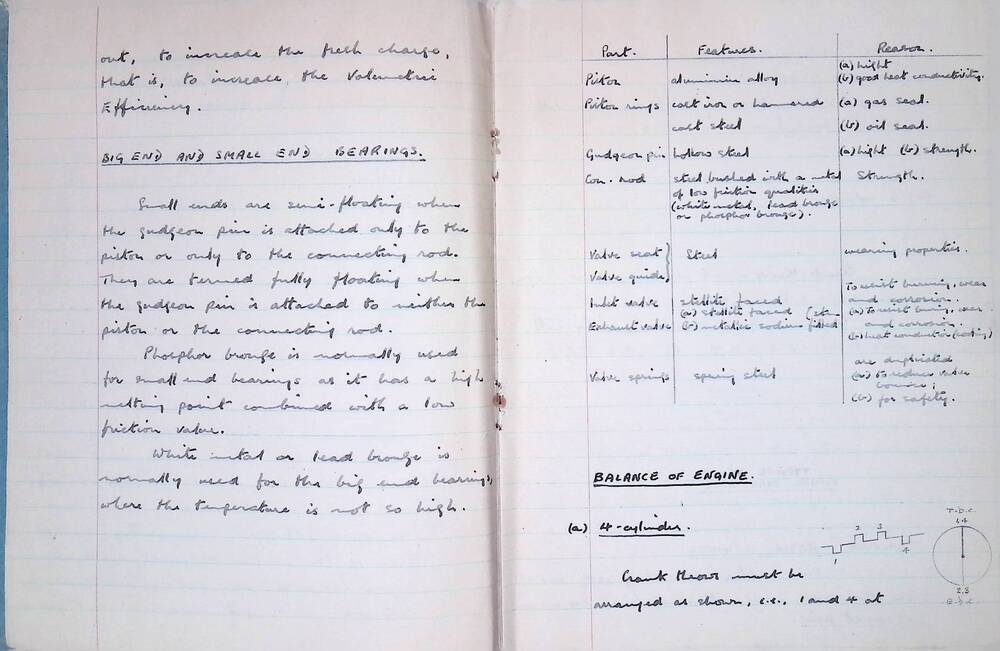 out, to increase the fresh charge,
that is, to increase, the Volumetric
Efficiency.
BIG END AND SMALL END BEARINGS.
Small ends are semi-floating when
the gudgeon pin is attached only to the
piston or only to the connecting rod.
They are termed fully floating when
the gudgeon pin is attached to neither the
piston or the connecting rod.
Phosphor bronze is normally used
for small end bearings as it has a high
melting point combined with a low
friction value.
White metal or lead bronze is
normally used for the big end bearings,
where the temperature is not so high.
Part. Features. Reason.
(a) light
Piston aluminium alloy (b) good heat conductivity.
Piston rings cast iron or hammered (a) gas seal.
cast steel (b) oil seal.
Gudgeon pin hollow steel (a) light (b) strength.
Con. rod steel bushed with a metal Strength.
of low friction qualities
(white metal, lead bronze
or phosphor bronze).
Valve seat } Steel wearing properties.
Valve guide }
To resist burning, wear
Inlet valve stellite faced and corrosion.
(a) stellite faced (a) To resist burning, wear
Exhaust valve (b) metallic sodium filled and corrosion.
(b) heat conductor (cooling)
are duplicated
Valve springs spring steel (a) To reduce valve
bounce;
(b) for safety.
BALANCE OF ENGINE.
(a) 4-cylinder.
1 2 3 4
T.D.C.
1.4
2.3
B.D.C.
Crank throws must be
arranged as shown, i.e., 1 and 4 at